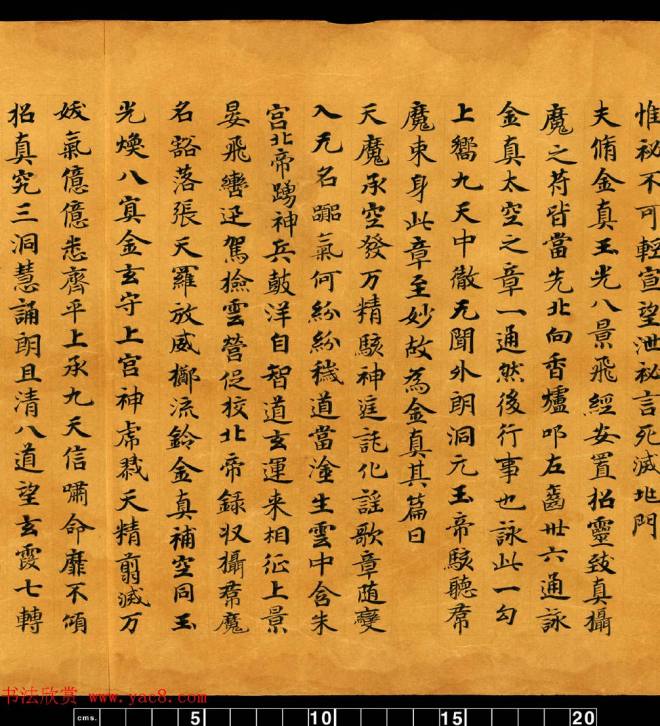 惟祕不可輕宣望泄祕言死滅地門
夫脩金真玉光八景飛經安置招靈致真攝
魔之符皆當先北向香爐叩左齒卅六通詠
金真太空之章一通然後行事也詠此一句
上嚮九天中徹无聞外朗洞元玉帝駭聽羣
魔束身此章至妙故為金真其篇曰
天魔承空發万精駭神迋託化謡歌章随變
入无名 氣何紛紛穢道當塗生雲中含朱
宫北帝踴神兵皷洋自智道玄運来相征上景
晏飛轡迅駕撿雲營促校北帝録収攝羣魔
名豁落張天羅放威擲流鈴金真補空同玉
光煥八寘金玄守上官神虎戮天精翦滅万
妖氣億億悉齊平上承九天信嘯命靡不傾
招真究三洞慧誦朗且清八道望玄霞七轉
书法欣赏 www.yac8.com
cms. 5 10 15 20